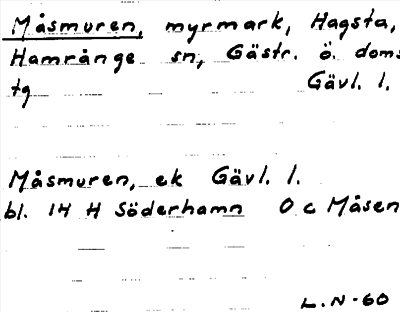 Måsmuren, myrmark, Hagsta,
Hamrånge sn, Gästr. ö. doms
tg Gävl. l.
Måsmuren, ek Gävl. l.
bl. 14 H Söderhamn O c Måsen
L.N-60